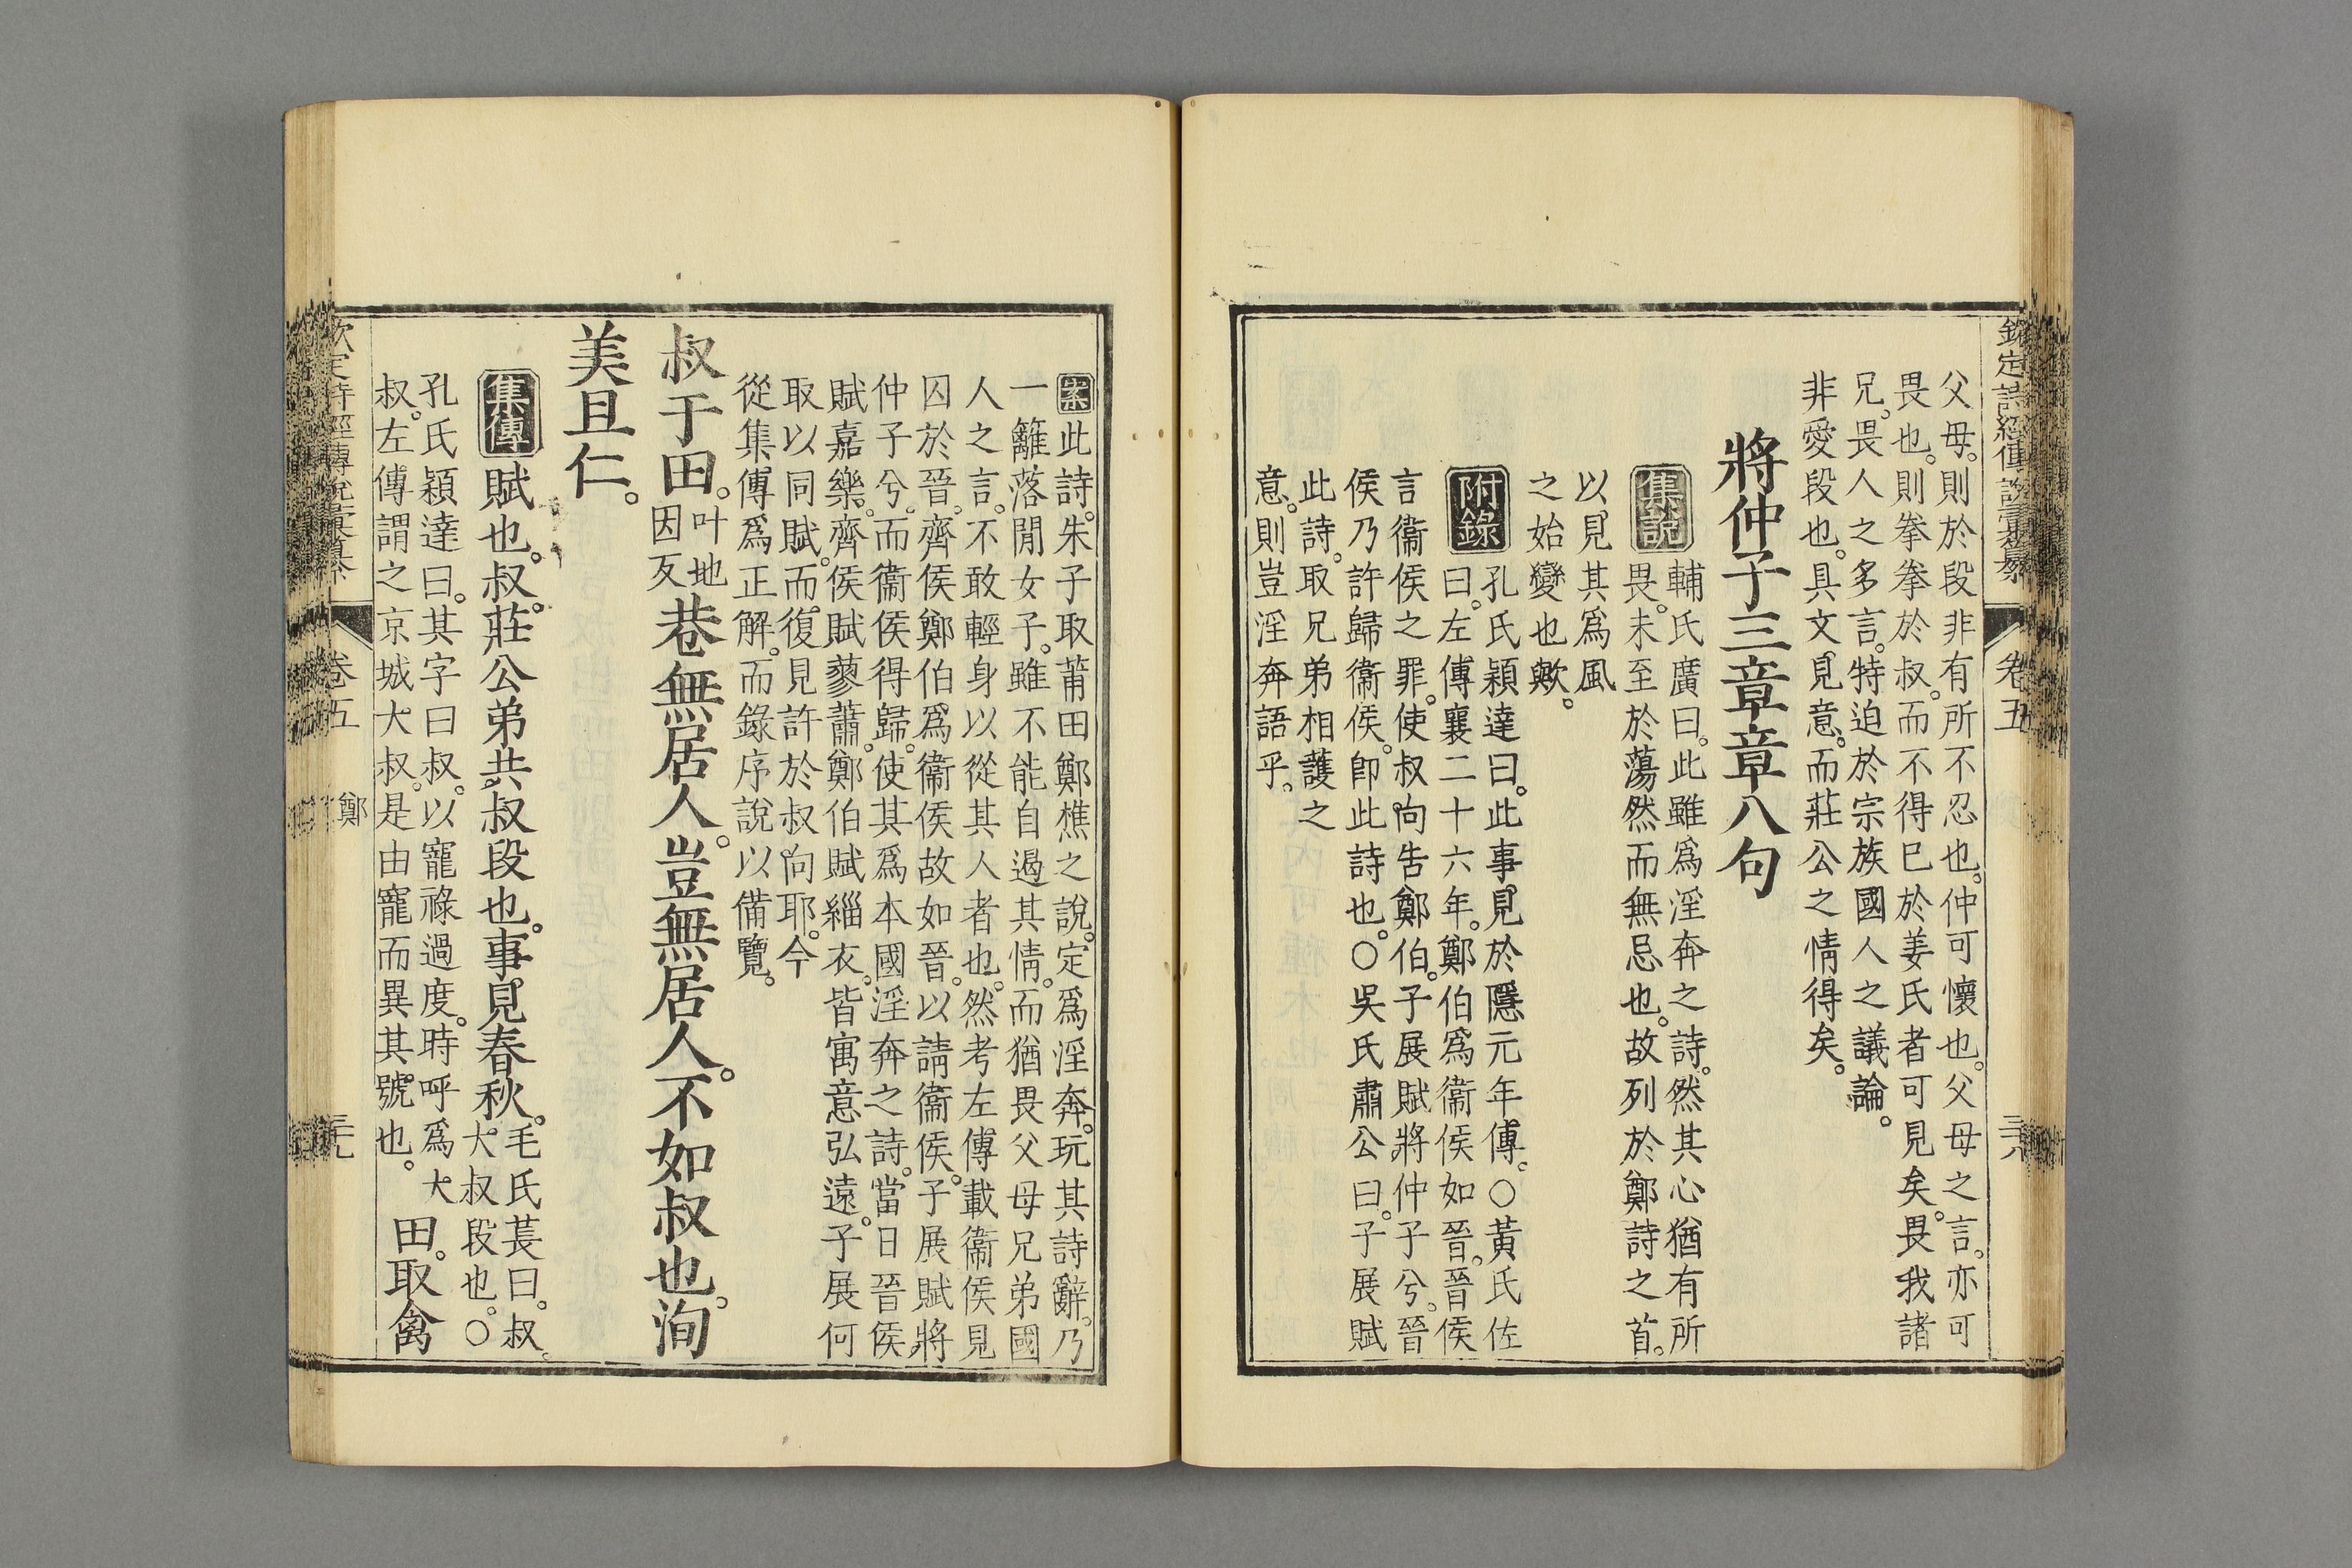 父母。則於段非有所不忍也。仲可懷也。父母之言。亦可
畏也。則拳拳於叔。而不得已於姜氏者可見矣。畏我諸
兄。畏人之多言。特迫於宗族國人之議論。
非愛段也。具文見意。而莊公之情得矣。
將仲子三章章八句
集說
輔氏廣曰。此雖爲淫奔之詩。然其心猶有所
畏。未至於蕩然而無忌也。故列於鄭詩之首。
以見其爲風
之始變也歟。
附錄
孔氏穎達曰。此事見於隱元年傳。○黃氏佐
曰。左傳襄二十六年。鄭伯爲衞侯如晉。晉侯
言衞侯之罪。使叔向告鄭伯。子展賦將仲子兮。晉
侯乃許歸衞侯。卽此詩也。○吳氏肅公曰。子展賦
此詩。取兄弟相護之
意。則豈淫奔語乎。
卷五
案此詩。朱子取莆田鄭樵之說。定爲淫奔。玩其詩辭。乃
一籬落閒女子。雖不能自遏其情。而猶畏父母兄弟國
人之言。不敢輕身以從其人者也。然考左傳載衞侯見
囚於晉。齊侯鄭伯爲衞侯故如晉。以請衞侯。子展賦將
仲子兮。而衞侯得歸。使其爲本國淫奔之詩。當日晉侯
賦嘉樂。齊侯賦蓼蕭。鄭伯賦緇衣。皆寓意弘遠。子展何
取以同賦。而復見許於叔向耶。今
從集傳爲正解。而錄序說以備覽。
叔于田。叶地因反巷無居人。豈無居人。不如叔也。洵
美且仁。
集傳賦也。叔。莊公弟共叔段也。事見春秋。毛氏萇曰。叔。大叔段也。○
孔氏穎達曰。其字曰叔。以寵祿過度。時呼爲大
叔。左傳謂之京城大叔。是由寵而異其號也。田。取禽
卷五
鄭